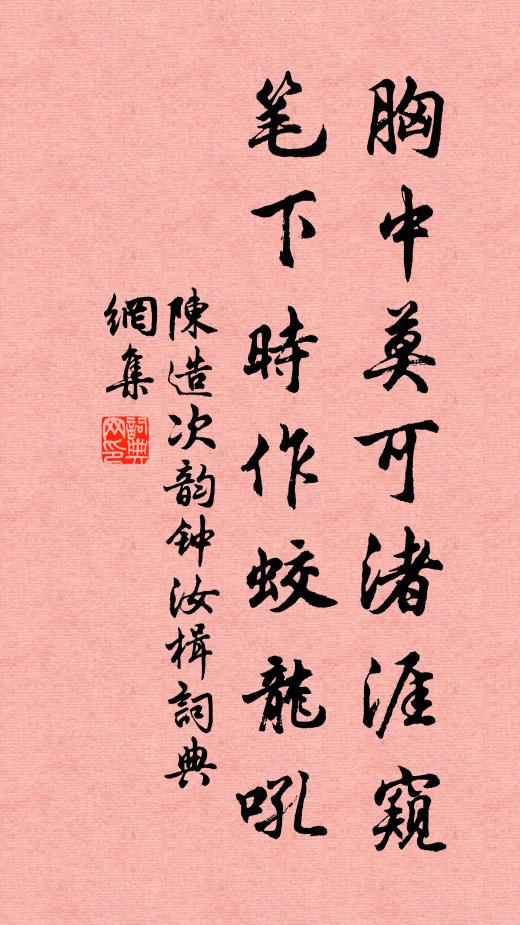 胸中莫可渚涯窺
笔下時作蛟龍吼
陳造次韵钟汝楫詞典
網集
詞典
网印